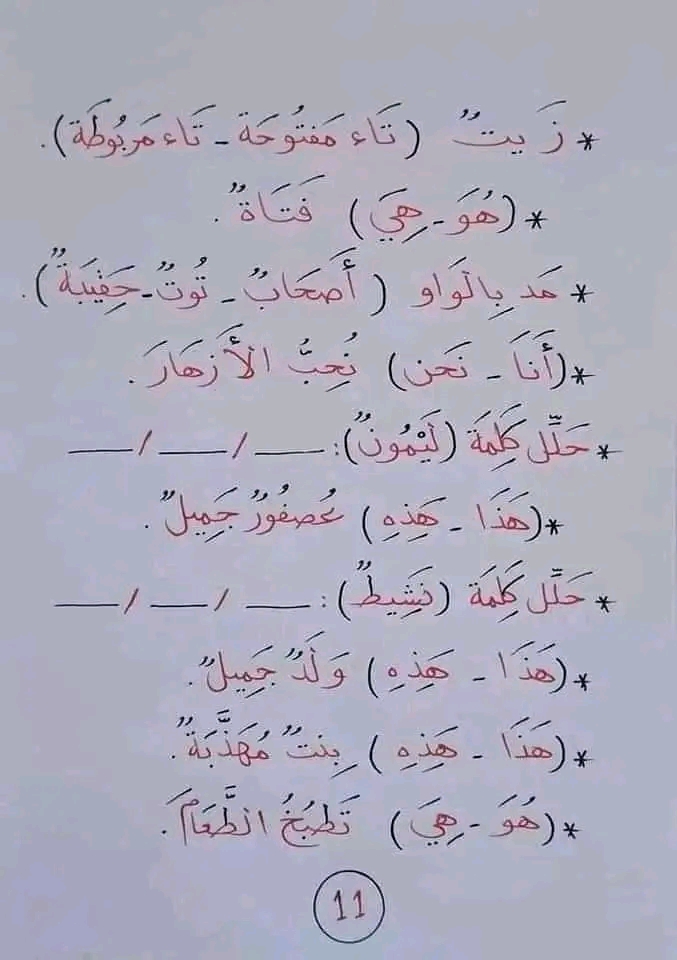 * زَيتٌ (تَاء مَفتُوحَة - تَاء مَربُوطَة).
* (هُوَ - هِيَ) فَتَاةٌ.
* مَد بِالوَاو (أَصحَابٌ - تُوتٌ - حَقِيبَةٌ).
* (أَنَا - نَحن) نُحِبُّ الأَزهَارَ.
* حَلِّل كَلِمَة (لَيْمُونٌ): ___ / ___ / ___
* (هَذَا - هَذِهِ) عُصفُورٌ جَمِيلٌ.
* حَلِّل كَلِمَة (نَشِيطٌ): ___ / ___ / ___
* (هَذَا - هَذِهِ) وَلَدٌ جَمِيلٌ.
* (هَذَا - هَذِهِ) بِنتٌ مُهَذَّبَةٌ.
* (هُوَ - هِيَ) تَطبُخُ الطَّعَامَ.
11